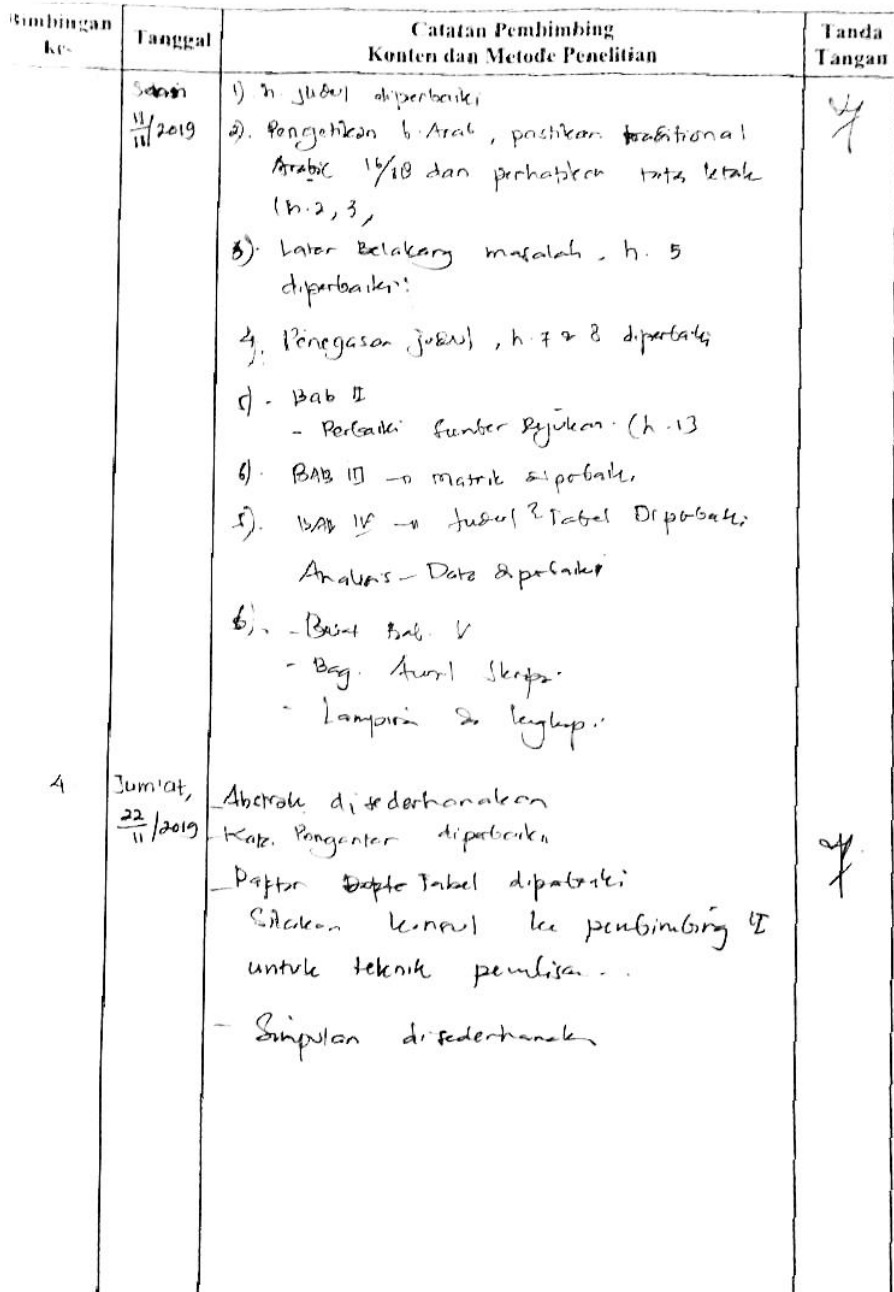 Bimbingan ke-
Tanggal
Catatan Pembimbing
Konten dan Metode Penelitian
Tanda Tangan
Senin
11/11/2019
1) h. judul diperbaiki
2). Pengetikan b. Arab, pastikan traditional
Arabic 16/18 dan perhatikan tata letak
(h.2, 3,
3). Latar Belakang masalah, h. 5
diperbaiki
4. Penegasan judul, h. 7 & 8 diperbaiki
5) - Bab II
- Perbaiki sumber Rujukan. (h. 13
6). BAB III → matrik diperbaiki
5). BAB IV → Judul² Tabel Diperbaiki
Analisis - Data diperbaiki
6). - Buat Bab. V
- Bag. Awal Skripsi.
- Lampiran lengkap.
4
Jum'at,
22/11/2019
- Abstrak disederhanakan
- Kata Pengantar diperbaiki
- Daftar Tabel diperbaiki
Silakan konsul ke pembimbing II
untuk teknik penulisan..
- Simpulan disederhanakan